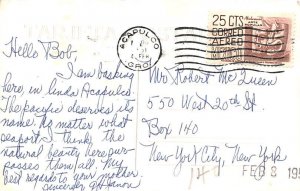 TARJETA
Hello Bob,
I am basking
here, in linda Acapulco.
The pacific deserves its
name. No matter what
seaport I think the
natural beauty here sur-
passes them all. My
best regards to your mother
sincerely
ACAPULCO
GRO.
25 CTS
CORREO
AEREO
Mr Robert McQueen
550 West 20th St.
Box 140
New York City, New York
FEB 3 19